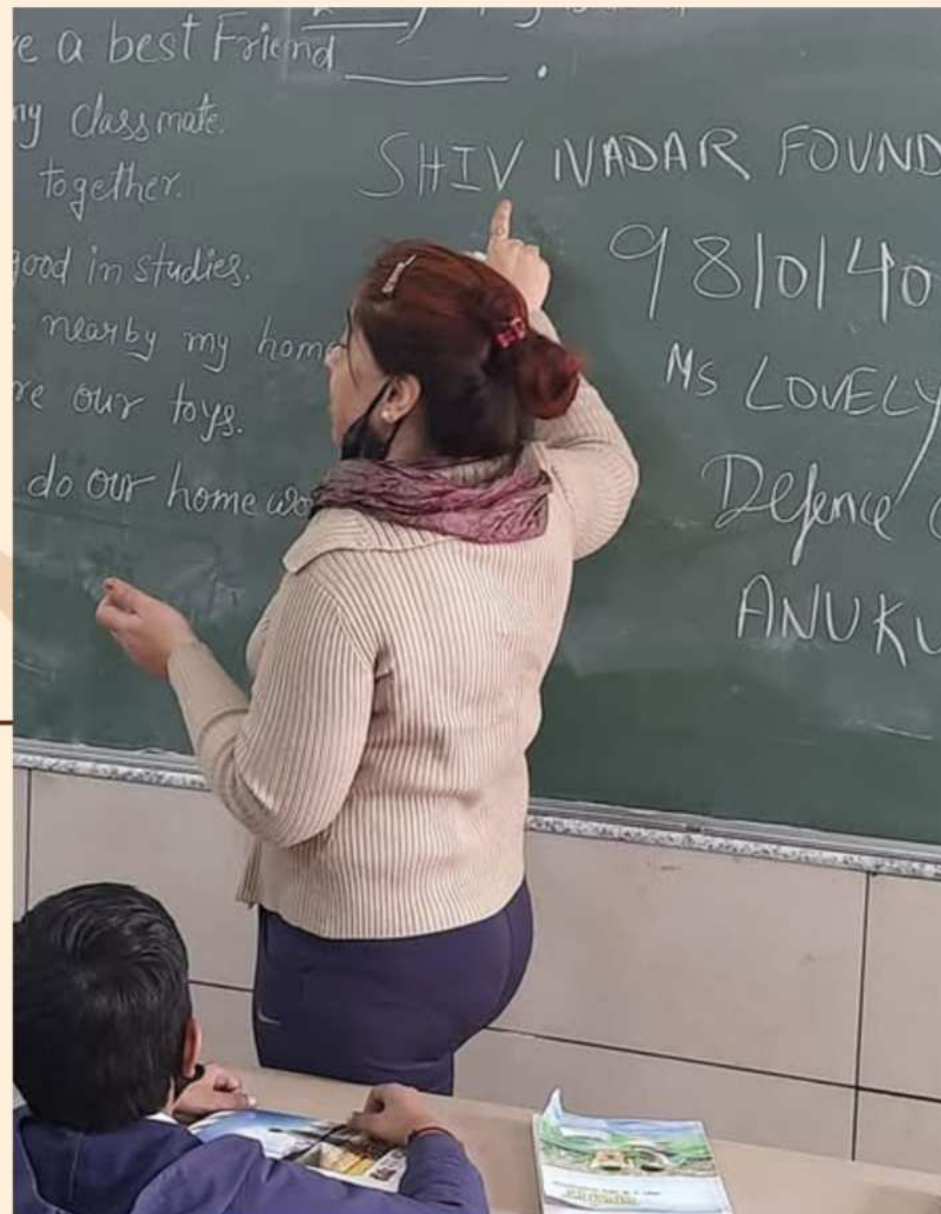 e a best Friend ______.
my classmate.
together.
good in studies.
nearby my home
re our toys.
do our homewo
SHIV NADAR FOUND
9810140
Ms LOVELY
Defence
ANUKU